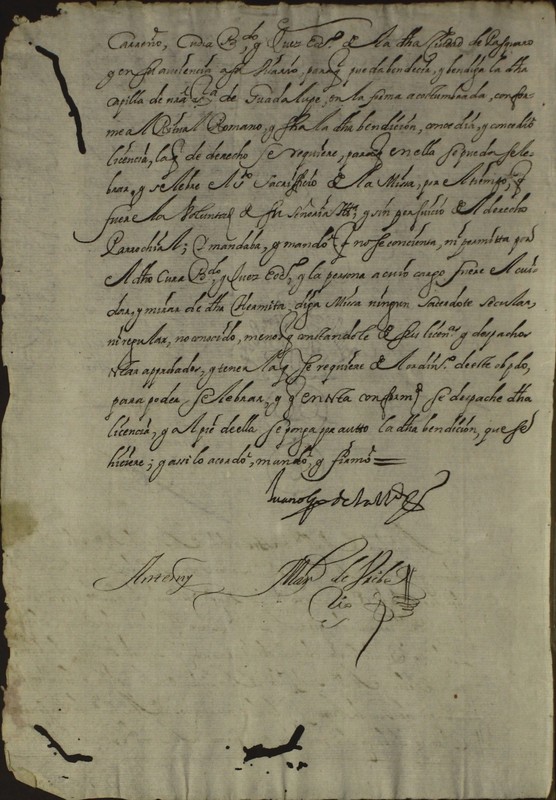 Carreño, Cura B.do y Juez Ecc.o de la dha Ciudad de Pasquaro
y en su auciencia a su Vicario, para q pueda bendecir, y bendiga la dha
capilla de nra Sra de Guadalupe, en la forma acostumbrada, confor-
me al Ritual Romano, y fha la dha bendicion, concedia, y concedio
licencia, la q de derecho se requiere, para q en ella se pueda sele-
brar, y selebre el Sto Sacrificio de la Missa, por el tiempo, q
fuere la Voluntad de su Señoria Illma y sin perjuicio del derecho
Parrochial; Y mandaba, y mando q no se conciensa, ni permitta por
el dho Cura B.do y Juez Ecc.o y la persona a cuio cargo fuere el cui-
dar, y mirar de dha Hermita, diga Missa ningun Sacerdote Secular,
ni regular, no conocido, menos q constandole de sus licen.s y despachos
estar approbados, y tener la q se requiere del ordin.o deste obpdo,
para poder selebrar, y q en esta conform.d se despache dha
licencia, y al pie de ella se ponga por autto la dha bendicion, que se
hiciere; y assi lo acordo, mando, y firmo
Ante my